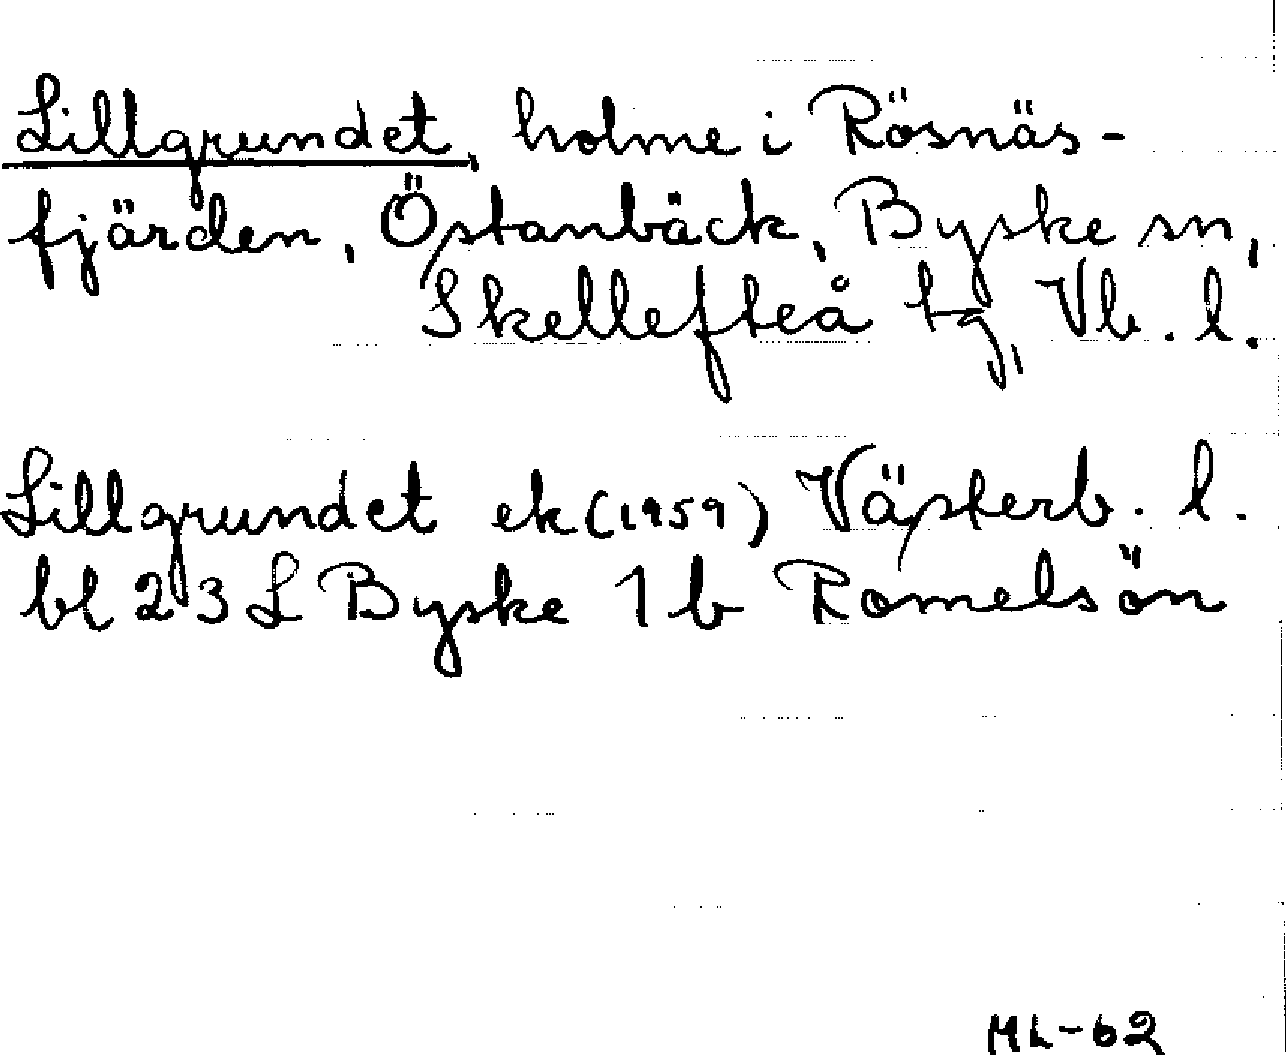 Lillgrundet, holme i Rösnäs-
fjärden, Östanbäck, Byske sn,
Skellefteå tg, Vb. l.
Lillgrundet ek (1959) Västerb. l.
bl 23 L Byske 1 b Romelsön
ML-62